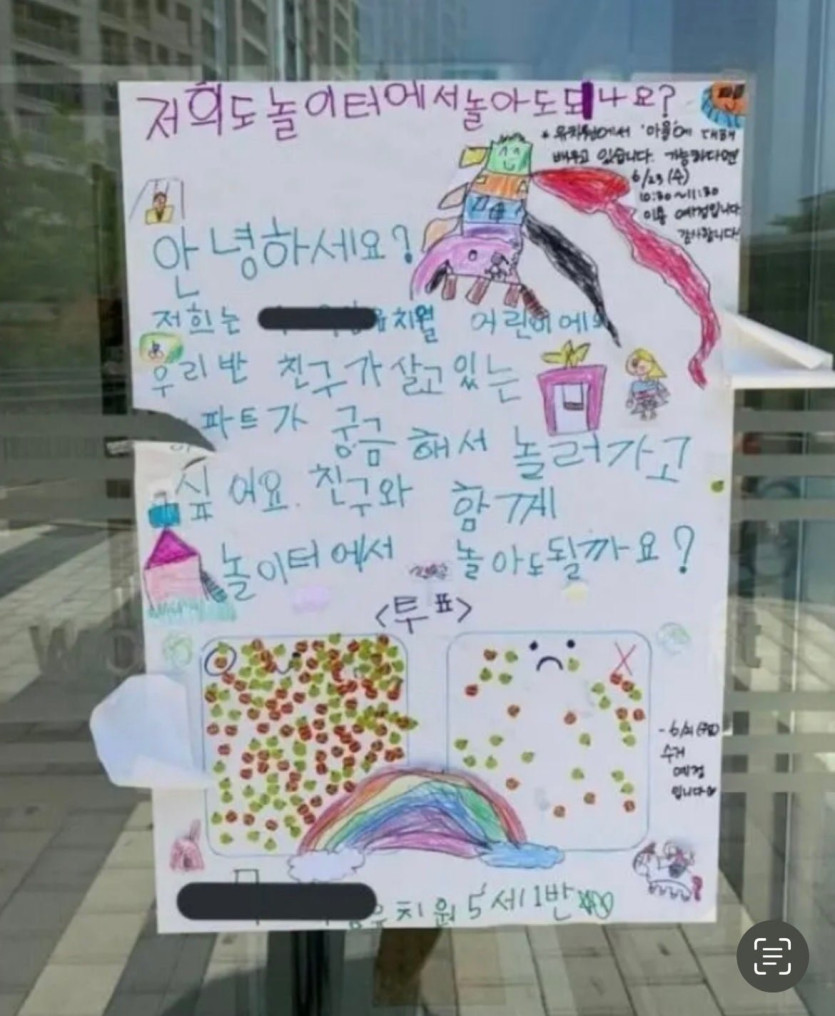 저희도 놀이터에서 놀아도 되나요?
* 유치원에서 '마을'에 대해
배우고 있습니다. 가능하다면
6/23 (수)
10:30~11:30
이용 예정입니다
감사합니다!
안녕하세요?
저희는 유치원 어린이에요
우리반 친구가 살고 있는
파트가 궁금해서 놀러가고
싶어요. 친구와 함께
놀이터에서 놀아도될까요?
<투표>
O X
- 6/21(월)
수거
예정
입니다
유치원 5세1반